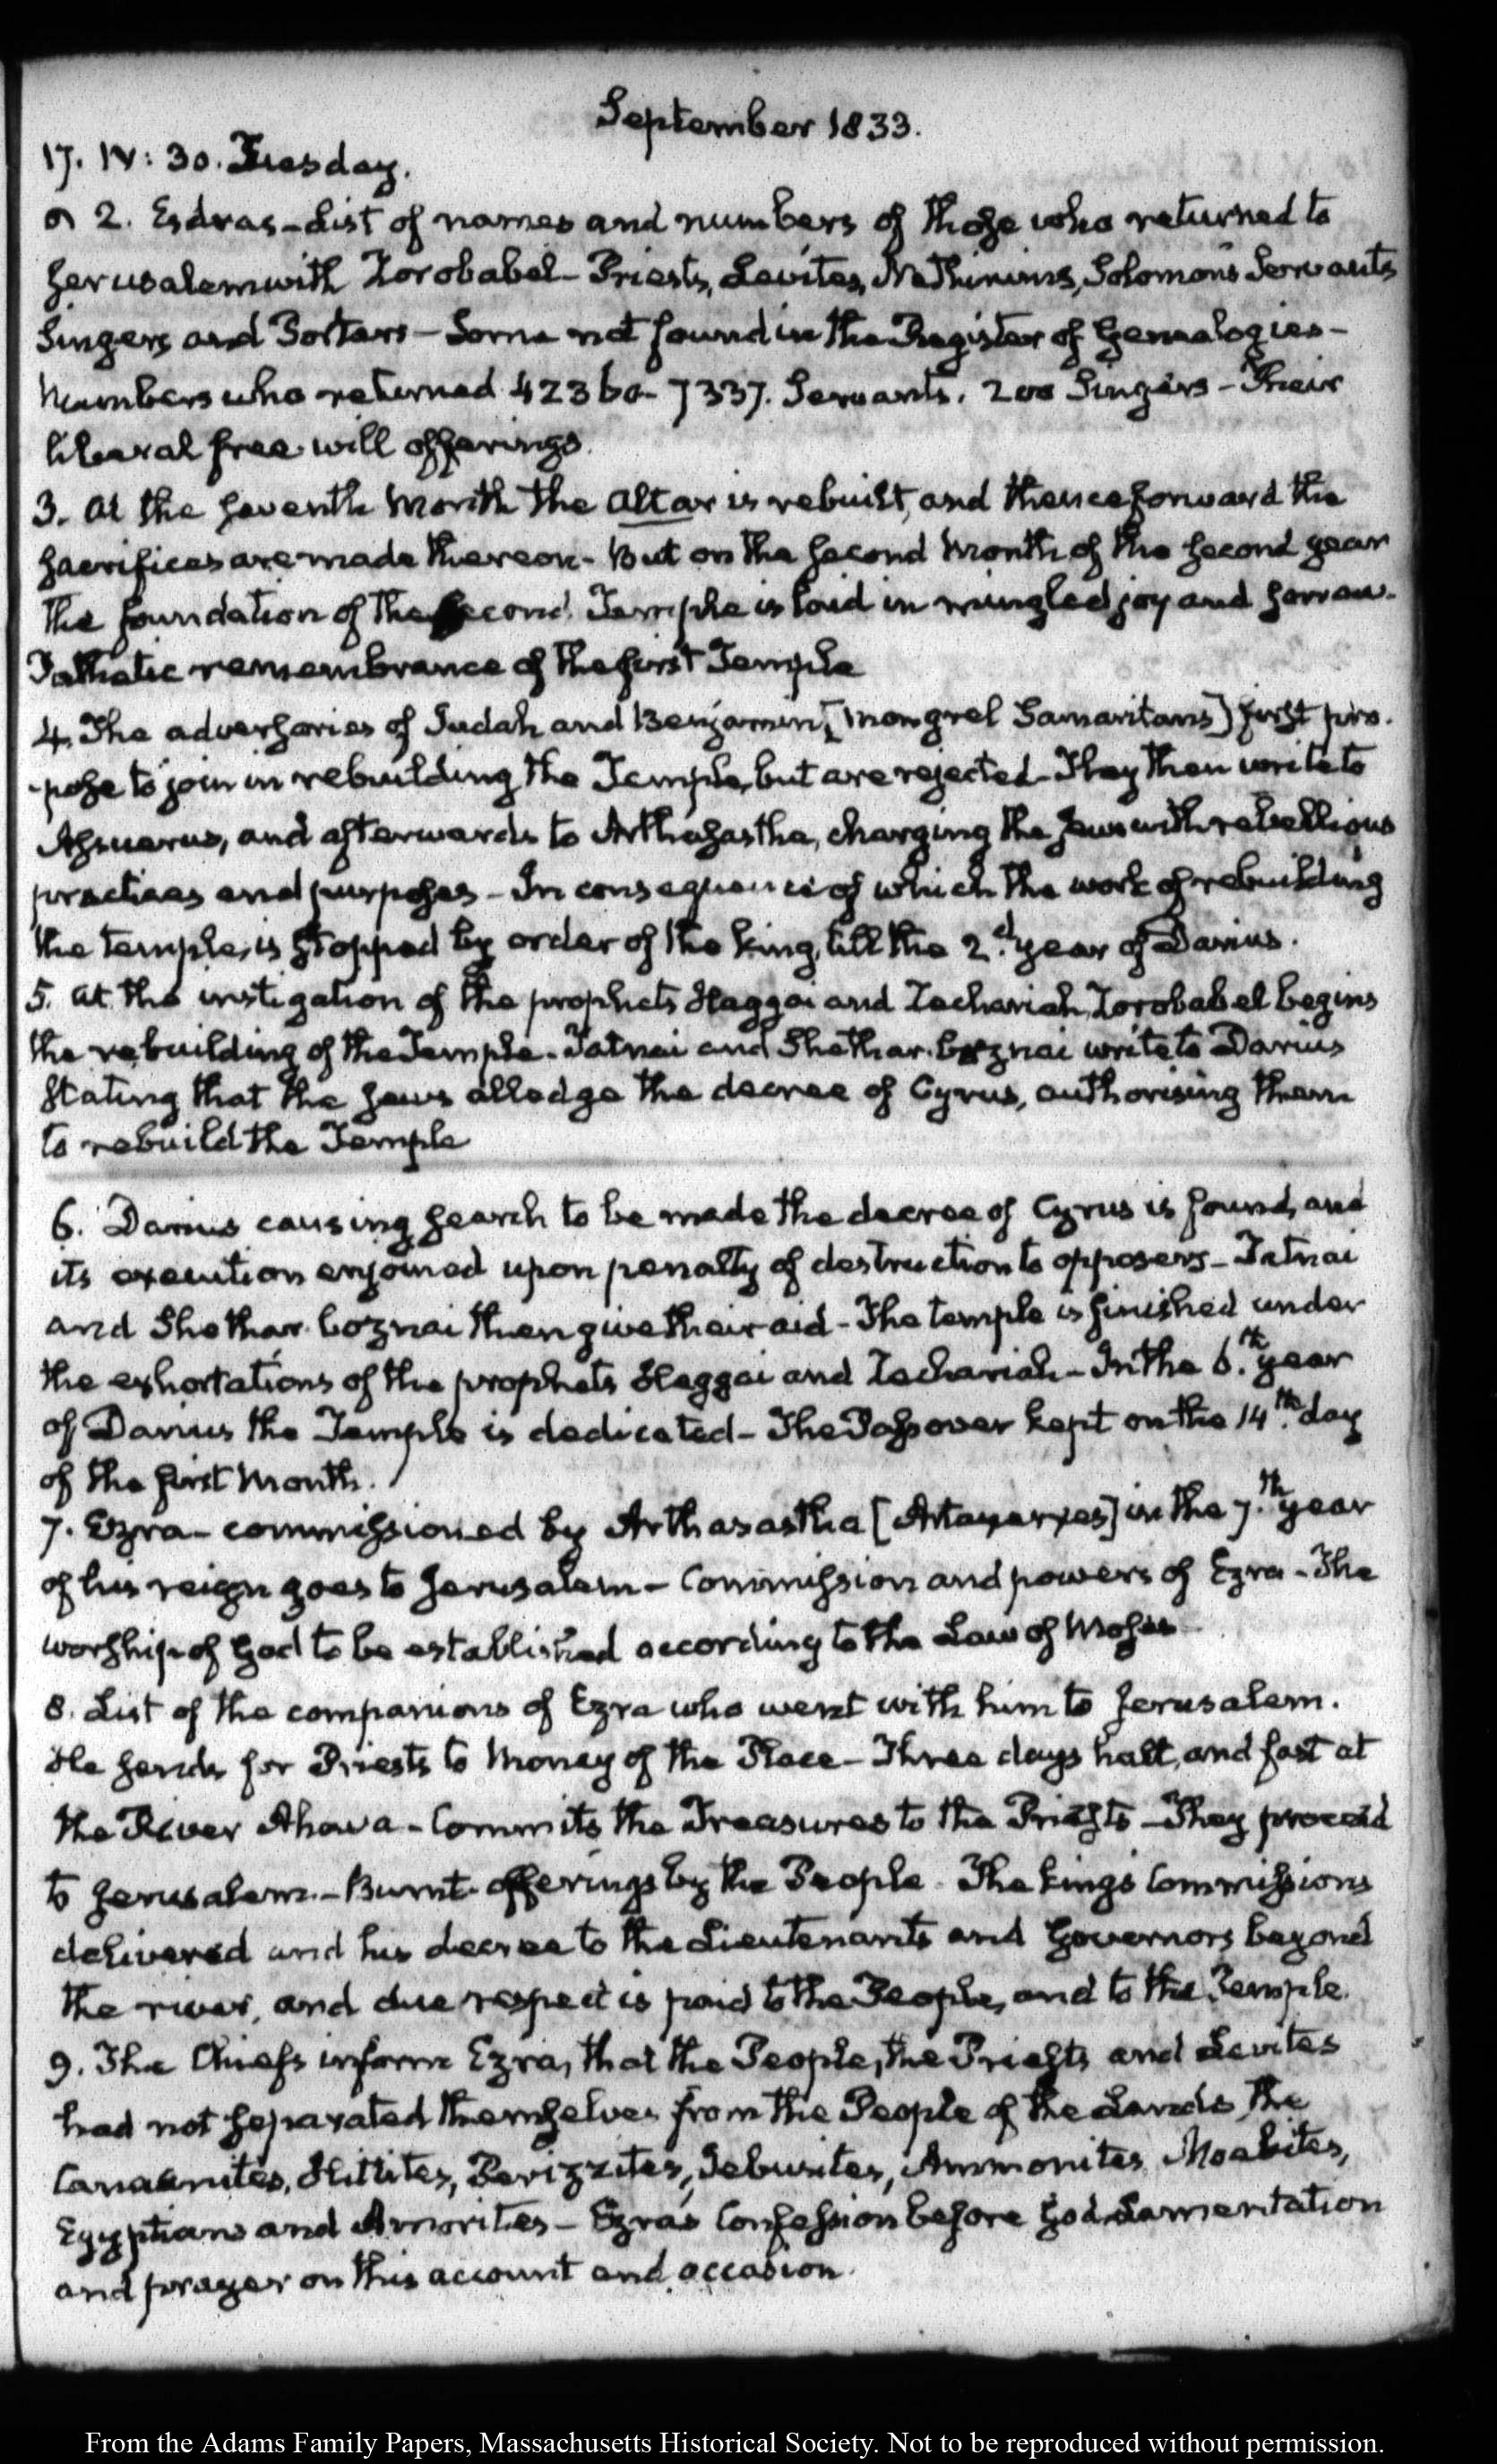 September 1833.
17. IV: 30. Tuesday.
2. Esdras - List of names and numbers of those who returned to
Jerusalem with Zorobabel - Priests, Levites, Nethinims, Solomon's Servants
Singers and Porters - Some not found in the Register of Genealogies -
Numbers who returned 42360 - 7337. Servants. 200 Singers - Their
liberal free-will offerings.
3. At the seventh Month the Altar is rebuilt, and thenceforward the
sacrifices are made thereon - But on the second Month of the second year
the foundation of the second Temple is laid in mingled joy and sorrow.
Pathetic remembrance of the first Temple
4. The adversaries of Judah and Benjamin, [mongrel Samaritans] first pro-
-pose to join in rebuilding the Temple, but are rejected - They then write to
Assuerus, and afterwards to Arthasastha, charging the Jews with rebellious
practices and purposes - In consequence of which the work of rebuilding
the temple, is stopped by order of the king, till the 2.d year of Darius.
5. At the instigation of the prophets Haggai and Zechariah, Zorobabel begins
the rebuilding of the Temple. Tatnai and Shethar-boznai write to Darius
stating that the Jews alledge the decree of Cyrus, authorising them
to rebuild the Temple
6. Darius causing search to be made the decree of Cyrus is found, and
its execution enjoined upon penalty of destruction to opposers - Tatnai
and Shethar-boznai then give their aid - The temple is finished under
the exhortations of the prophets Haggai and Zechariah - In the 6.th year
of Darius the Temple is dedicated - The Passover kept on the 14.th day
of the first Month.
7. Ezra - commissioned by Arthasastha [Artaxerxes] in the 7.th year
of his reign goes to Jerusalem - Commission and powers of Ezra - The
worship of God to be established according to the Law of Moses -
8. List of the companions of Ezra who went with him to Jerusalem.
He sends for Priests to Money of the Place - Three days halt, and fast at
the River Ahava - Commits the Treasures to the Priests - They proceed
to Jerusalem. - Burnt-offerings by the People - The king's Commissions
delivered and his decree to the Lieutenants and Governors beyond
the river, and due respect is paid to the People, and to the Temple.
9. The Chiefs inform Ezra, that the People, the Priests and Levites
had not separated themselves from the People of the Lands, the
Canaanites, Hittites, Perizzites, Jebusites, Ammonites, Moabites,
Egyptians and Amorites - Ezra's Confession before God, Lamentation
and prayer on this account and occasion.
From the Adams Family Papers, Massachusetts Historical Society. Not to be reproduced without permission.